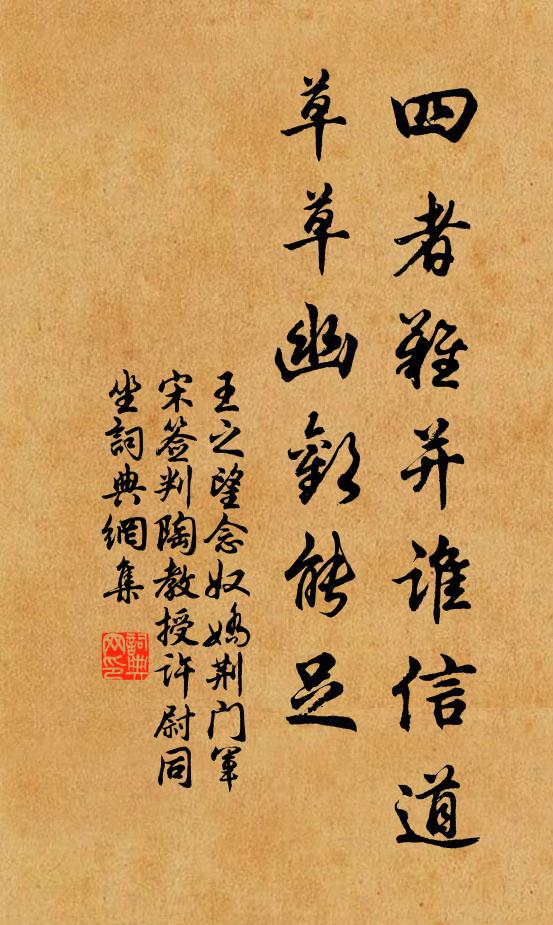 四者難并誰信道
草草幽歡能足
王之望念奴嬌荆门軍
宋签判陶教授许尉同
坐詞典網集
詞典
网印